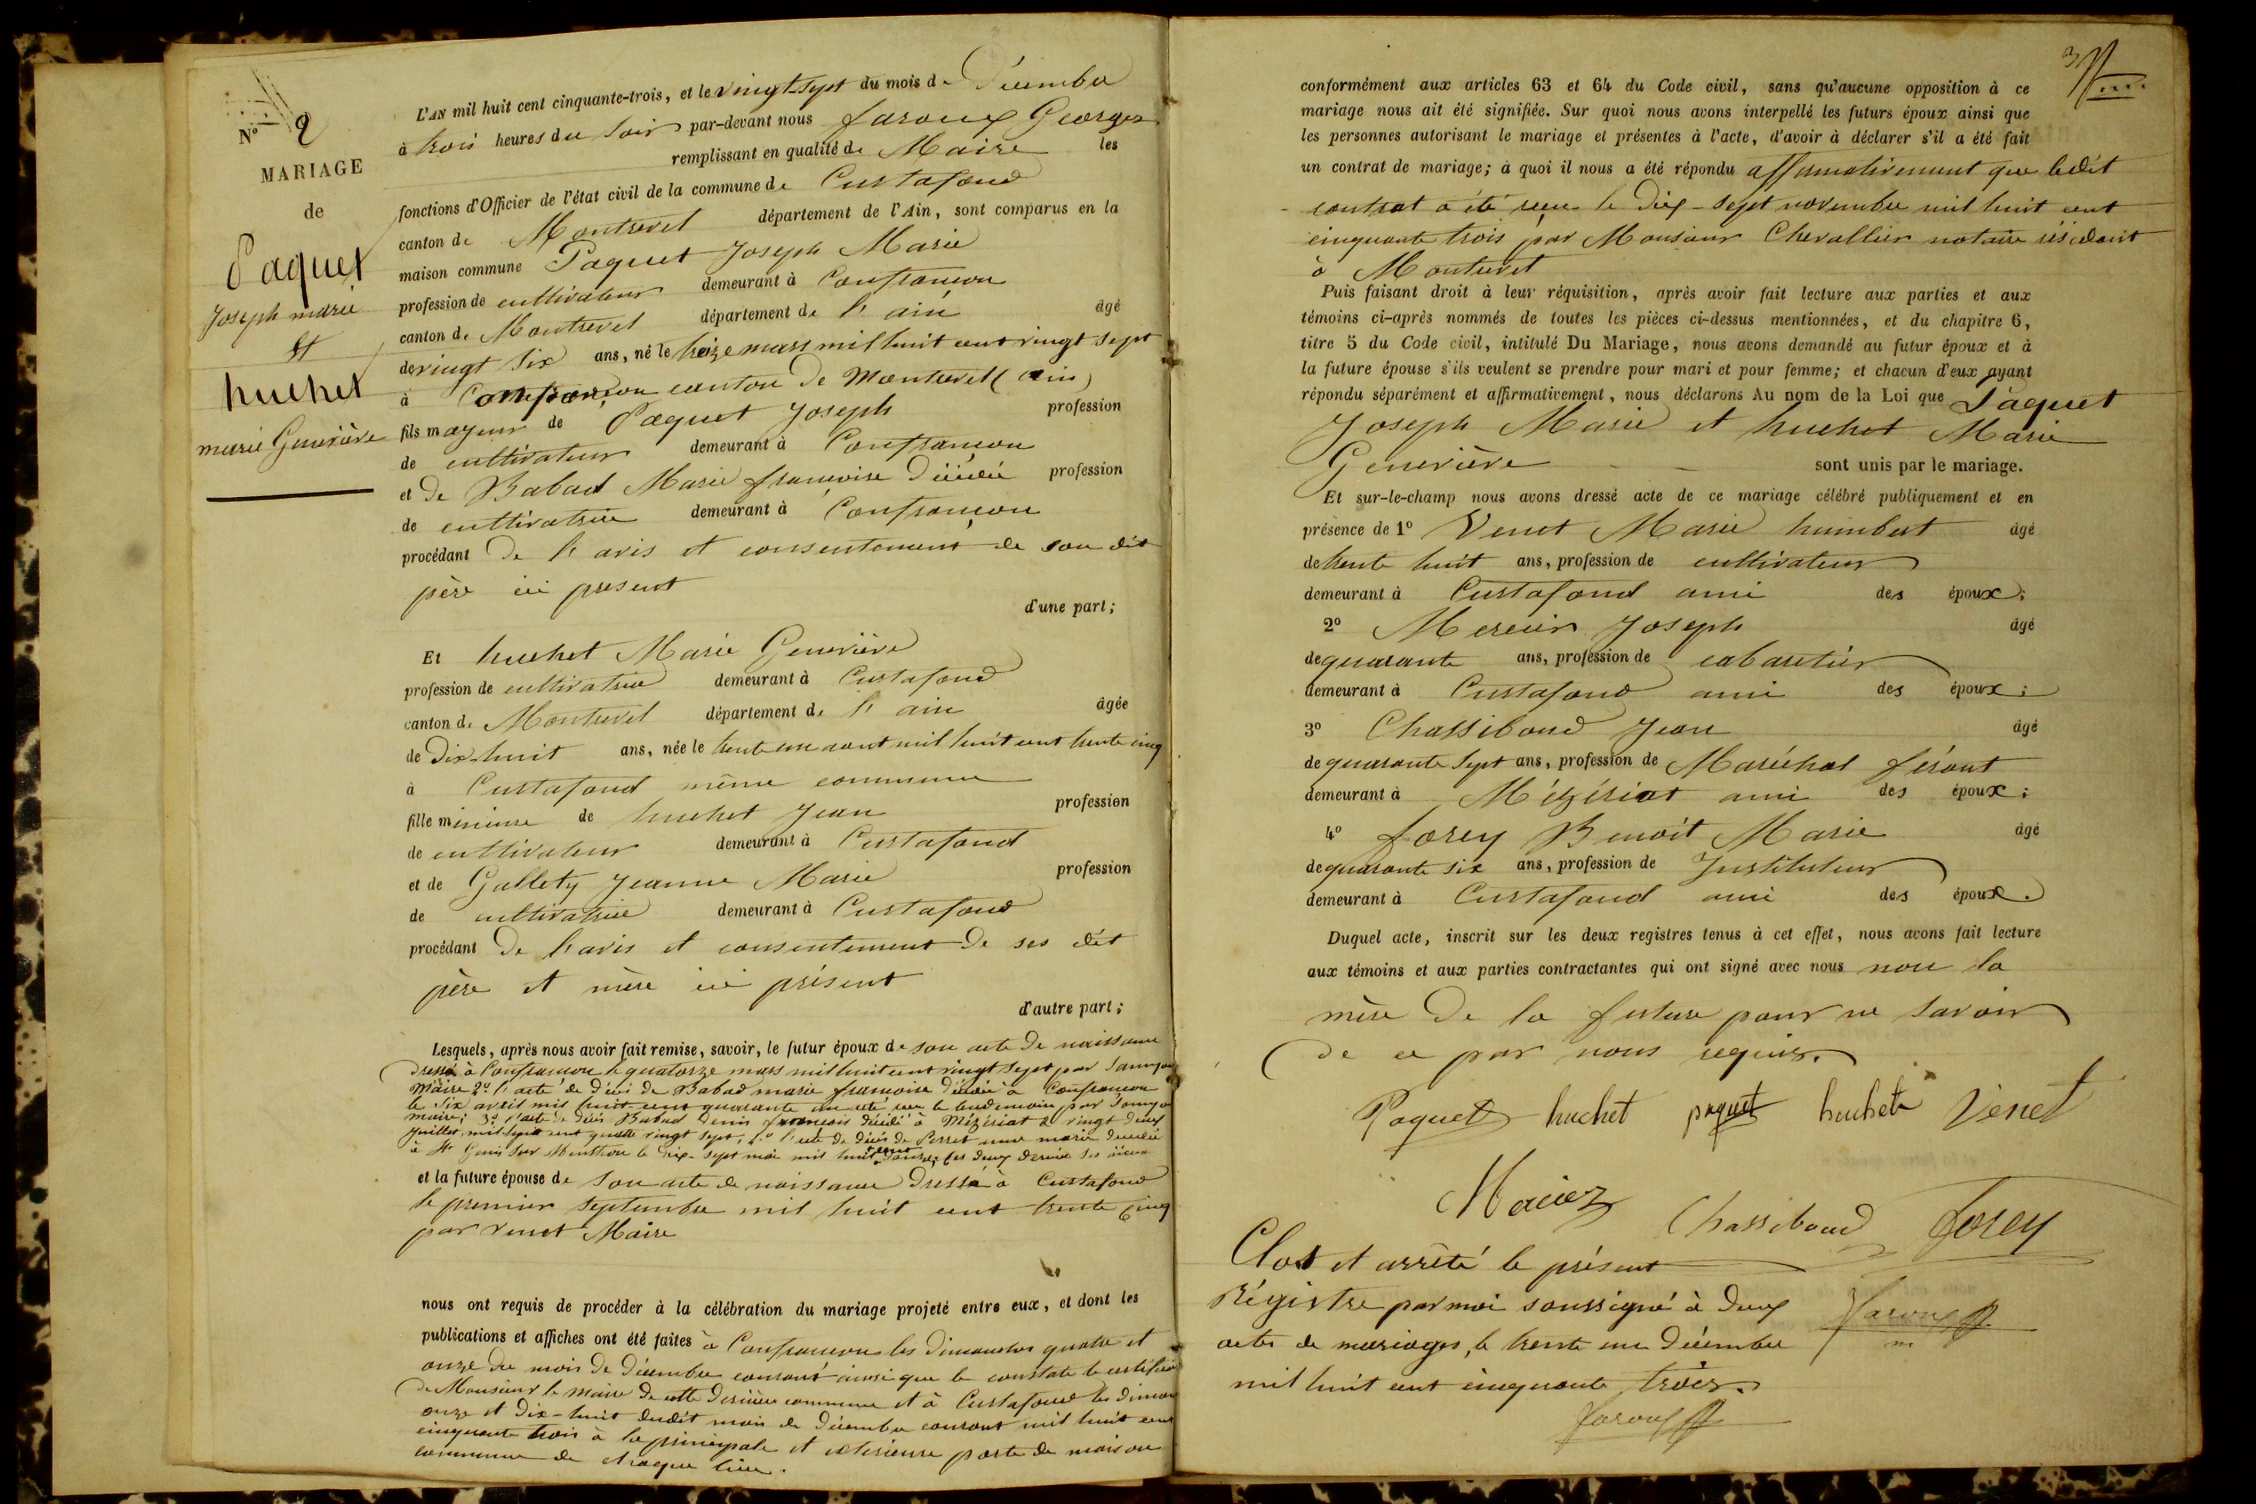 N° 2
MARIAGE
de
Paquet
Joseph marie
et
huchet
marie Geneviève
L'AN mil huit cent cinquante-trois, et le vingt-sept du mois de Décembre
à trois heures du soir par-devant nous faroux Georges
remplissant en qualité de Maire les
fonctions d'Officier de l'état civil de la commune de Curtafond
canton de Montrevel département de l'Ain, sont comparus en la
maison commune Paquet Joseph Marie
profession de cultivateur demeurant à Confrançon
canton de Montrevel département de l'ain âgé
de vingt six ans, né le treize mars mil huit cent vingt sept
à Confrançon canton de Montrevel (ain)
fils majeur de Paquet Joseph profession
de cultivateur demeurant à Confrançon
et de Babad Marie françoise Décédée profession
de cultivatrice demeurant à Confrançon
procédant De l'avis et consentement de son dit
père ici present
d'une part;
Et huchet Marie Geneviève
profession de cultivatrice demeurant à Curtafond
canton de Montrevel département de l'ain âgée
de Dix-huit ans, née le trente un aout mil huit cent trente cinq
à Curtafond même commune
fille mineure de huchet Jean profession
de cultivateur demeurant à Curtafond
et de Gallety Jeanne Marie profession
de cultivatrice demeurant à Curtafond
procédant De l'avis et consentement De ses dit
père et mère ici présent
d'autre part;
Lesquels, après nous avoir fait remise, savoir, le futur époux de son acte De naissance
Dressé à Confrançon le quatorze mars mil huit cent vingt sept par
Maire 2° l'acte de décès de Babad marie françoise décédée à Confrançon
le six avril mil huit cent quarante un acté reçu le lendemain par
maire; 3° l'acte de décès Babad Denis françois décédé à Mézériat le vingt deux
Juillet mil sept cent quatre vingt sept, 4° l'acte de décès de Perret anne marie décédée
à St Genis sur Menthon le dix-sept mai mil huit cent douze; ces deux derniers ses aïeux
et la future épouse de son acte de naissance Dressé à Curtafond
le premier septembre mil huit cent trente cinq
par Venet Maire
nous ont requis de procéder à la célébration du mariage projeté entre eux, et dont les
publications et affiches ont été faites à Confrançon les dimanches quatre et
onze du mois de Décembre courant ainsi que le constate le certificat
de Monsieur le maire de cette dernière commune et à Curtafond les diman
onze et dix-huit dudit mois de décembre courant mil huit cent
cinquante trois à la principale et extérieure porte de maison
commune de chaque lieu.
3
conformément aux articles 63 et 64 du Code civil, sans qu'aucune opposition à ce
mariage nous ait été signifiée. Sur quoi nous avons interpellé les futurs époux ainsi que
les personnes autorisant le mariage et présentes à l'acte, d'avoir à déclarer s'il a été fait
un contrat de mariage; à quoi il nous a été répondu affirmativement que ledit
contrat a été reçu le dix-sept novembre mil huit cent
cinquante trois par Monsieur Chevallier notaire résidant
à Montrevel
Puis faisant droit à leur réquisition, après avoir fait lecture aux parties et aux
témoins ci-après nommés de toutes les pièces ci-dessus mentionnées, et du chapitre 6,
titre 5 du Code civil, intitulé Du Mariage, nous avons demandé au futur époux et à
la future épouse s'ils veulent se prendre pour mari et pour femme; et chacun d'eux ayant
répondu séparément et affirmativement, nous déclarons Au nom de la Loi que Paquet
Joseph Marie et huchet Marie
Geneviève sont unis par le mariage.
Et sur-le-champ nous avons dressé acte de ce mariage célébré publiquement et en
présence de 1° Venet Marie humbert âgé
de trente huit ans, profession de cultivateur
demeurant à Curtafond ami des époux;
2° Mercier Joseph âgé
de quarante ans, profession de cabaretier
demeurant à Curtafond ami des époux;
3° Chassiboud Jean âgé
de quarante sept ans, profession de Maréchal férant
demeurant à Mézériat ami des époux;
4° forey Benoit Marie âgé
de quarante six ans, profession de Instituteur
demeurant à Curtafond ami des époux.
Duquel acte, inscrit sur les deux registres tenus à cet effet, nous avons fait lecture
aux témoins et aux parties contractantes qui ont signé avec nous non la
mère De la future pour ne savoir
de ce par nous requis.
Paquet huchet paquet huchet Venet
Chassiboud forey
Clos et arrêté le présent
Régistre par moi soussigné à Deux
actes de mariages, le trente un Décembre
mil huit cent cinquante trois.
faroux
faroux